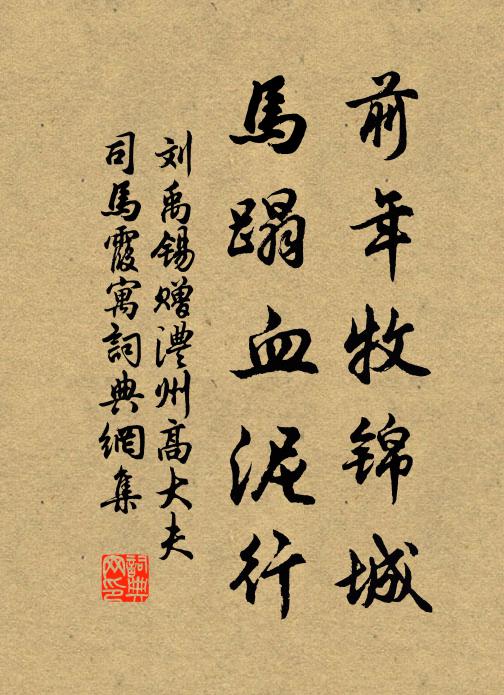 前年牧锦城
馬蹋血泥行
刘禹锡赠澧州高大夫
司馬霞寓詞典網集
詞典
网印